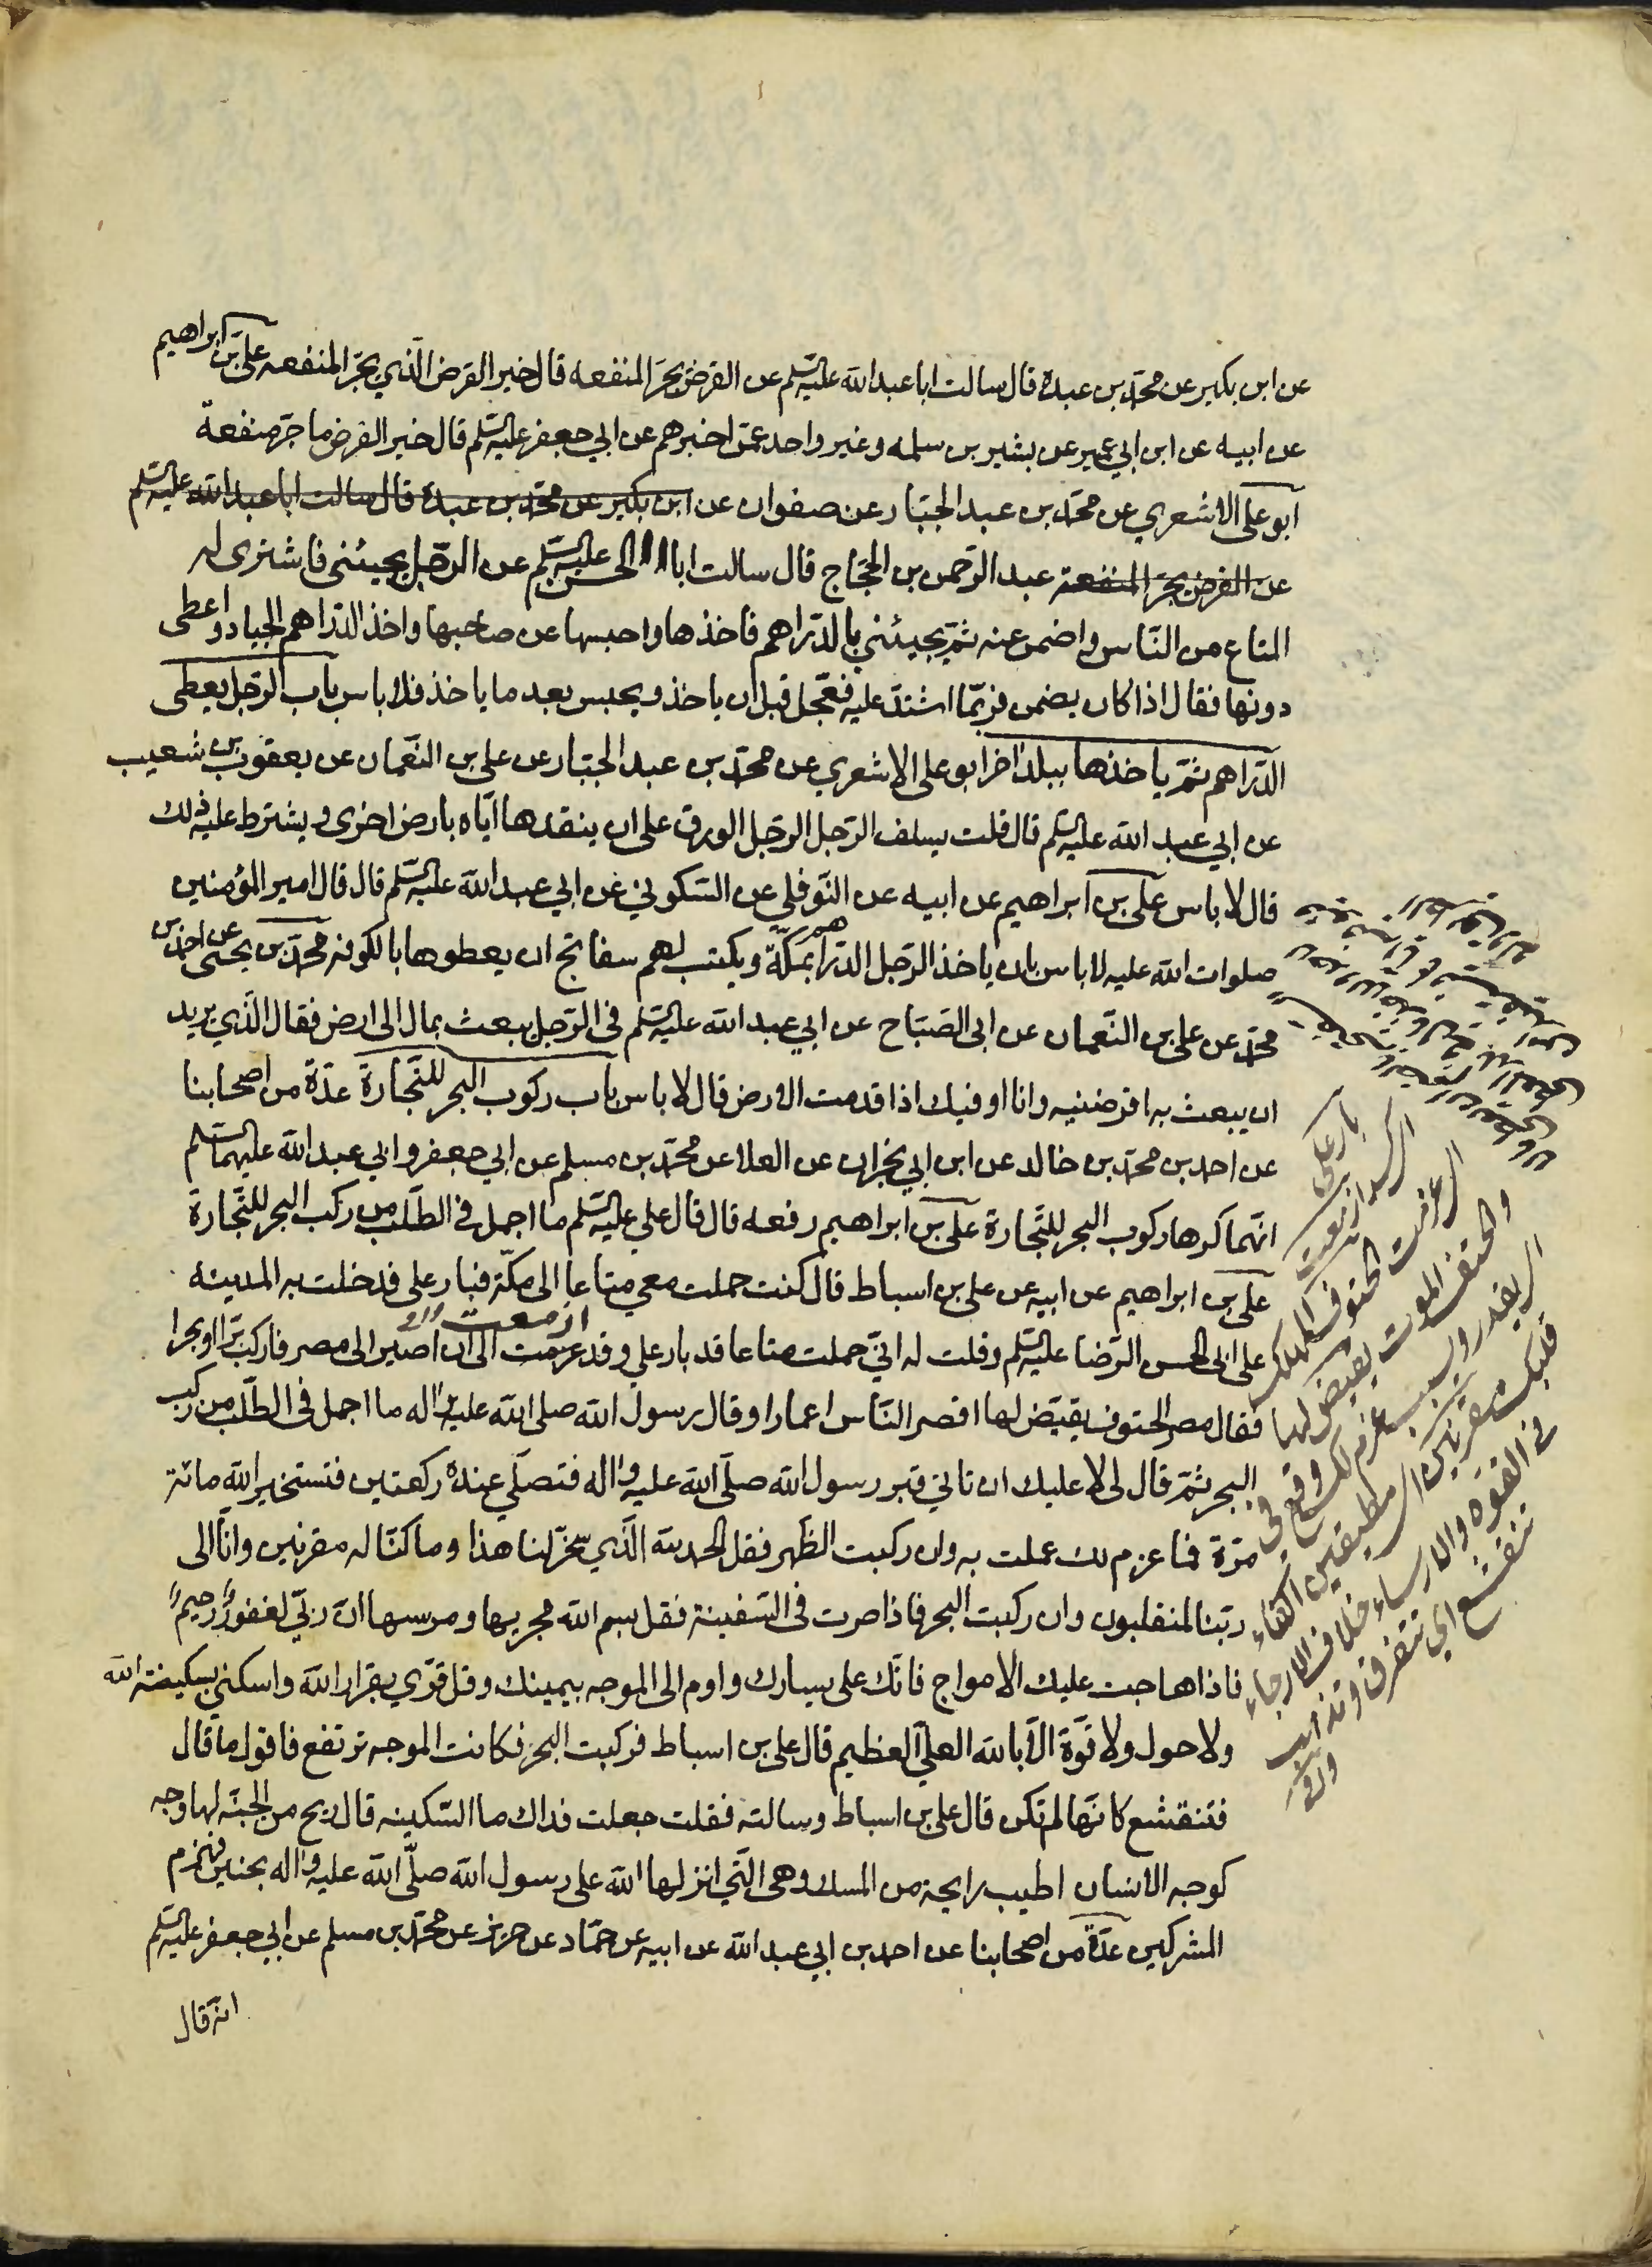 عن ابن بكير عن محمد بن عبدة قال سالت ابا عبد الله عليه السلم عن القرض يجر المنفعه قال خير القرض الذي يجر المنفعه علي بن ابراهيم
عن ابيه عن ابن ابي عمير عن بشير بن سلمه وغير واحد عمن اخبرهم عن ابي جعفر عليه السلم قال خير القرض ما جر منفعة
ابو علي الاشعري عن محمد بن عبد الجبار عن صفوان عن ابن بكير عن محمد بن عبدة قال سالت ابا عبد الله عليه السلم
عن القرض يجر المنفعة عبد الرحمن بن الحجاج قال سالت ابا الحسن عليه السلم عن الرجل يجيئني فاشترى له
المتاع من الناس واضمن عنه ثم يجيئني بالدراهم فاخذها واحبسها عن صاحبها واخذ الدراهم الجياد واعطى
دونها فقال اذا كان يضمن فربما اشتد عليه فعجل قبل ان ياخذ ويحبس بعد ما ياخذ فلا باس باب الرجل يعطى
الدراهم ثم ياخذها ببلد اخر ابو علي الاشعري عن محمد بن عبد الجبار عن علي بن النعمان عن يعقوب بن شعيب
عن ابي عبد الله عليه السلم قال قلت يسلف الرجل الرجل الورق على ان ينقدها اياه بارض اخرى ويشترط عليه ذلك
قال لا باس علي بن ابراهيم عن ابيه عن النوفلي عن السكوني عن ابي عبد الله عليه السلم قال قال امير المؤمنين
صلوات الله عليه لا باس بان ياخذ الرجل الدراهم بمكة ويكتب لهم سفاتج ان يعطوها بالكوفه محمد بن يحيى عن احمد بن
محمد عن علي بن النعمان عن ابي الصباح عن ابي عبد الله عليه السلم في الرجل يبعث بمال الى ارض فقال الذي يريد
ان يبعث به اقرضنيه وانا اوفيك اذا قدمت الارض قال لا باس باب ركوب البحر للتجارة عدة من اصحابنا
عن احمد بن محمد بن خالد عن ابن ابي نجران عن العلا عن محمد بن مسلم عن ابي جعفر وابي عبد الله عليهما السلم
انهما كرها ركوب البحر للتجارة علي بن ابراهيم رفعه قال قال علي عليه السلم ما اجمل في الطلب من ركب البحر للتجارة
علي بن ابراهيم عن ابيه عن علي بن اسباط قال كنت حملت معي متاعا الى مكة فبار علي فدخلت به المدينه
ازمعت
على ابي الحسن الرضا عليه السلم وقلت له اني حملت متاعا قد بار علي وقد عزمت الى ان اصير الى مصر فاركب برا او بحرا
فقال مصر الحتوف يقيض لها اقصر الناس اعمارا وقال رسول الله صلى الله عليه واله ما اجمل في الطلب من ركب
البحر ثم قال لي لا عليك ان تاتي قبر رسول الله صلى الله عليه واله فتصلي عنده ركعتين فتستخير الله مائة
مرة فما عزم لك عملت به وان ركبت الظهر فقل الحمد لله الذي سخر لنا هذا وما كنا له مقرنين وانا الى
ربنا لمنقلبون وان ركبت البحر فاذا صرت في السفينة فقل بسم الله مجريها ومرسها ان ربي لغفور رحيم
فاذا هاجت عليك الامواج فاتك على يسارك واوم الى الموجه بيمينك وقل قري بقرار الله واسكني بسكينة الله
ولا حول ولا قوة الا بالله العلي العظيم قال علي بن اسباط فركبت البحر فكانت الموجه ترتفع فاقول ما قال
فتنقشع كانها لم تكن قال علي بن اسباط وسالته فقلت جعلت فداك ما السكينه قال ريح من الجنة لها وجه
كوجه الانسان اطيب رايحة من المسك وهي التي انزلها الله على رسول الله صلى الله عليه واله بحنين فهزم
المشركين عدة من اصحابنا عن احمد بن ابي عبد الله عن ابيه عن حماد عن حريز عن محمد بن مسلم عن ابي جعفر عليه السلم
انه قال
بار علي
اي كسد ازمعت
اي عزمت الحتوف المهلك
والحتف الموت يقيض لها
اي يقدر ويسبب عزم لك وقع في
قلبك مقرنين اي مطيقين اكفاء
في القوه والارساء خلاف الارجاء
تنقشع اي تتفرق وتذهب